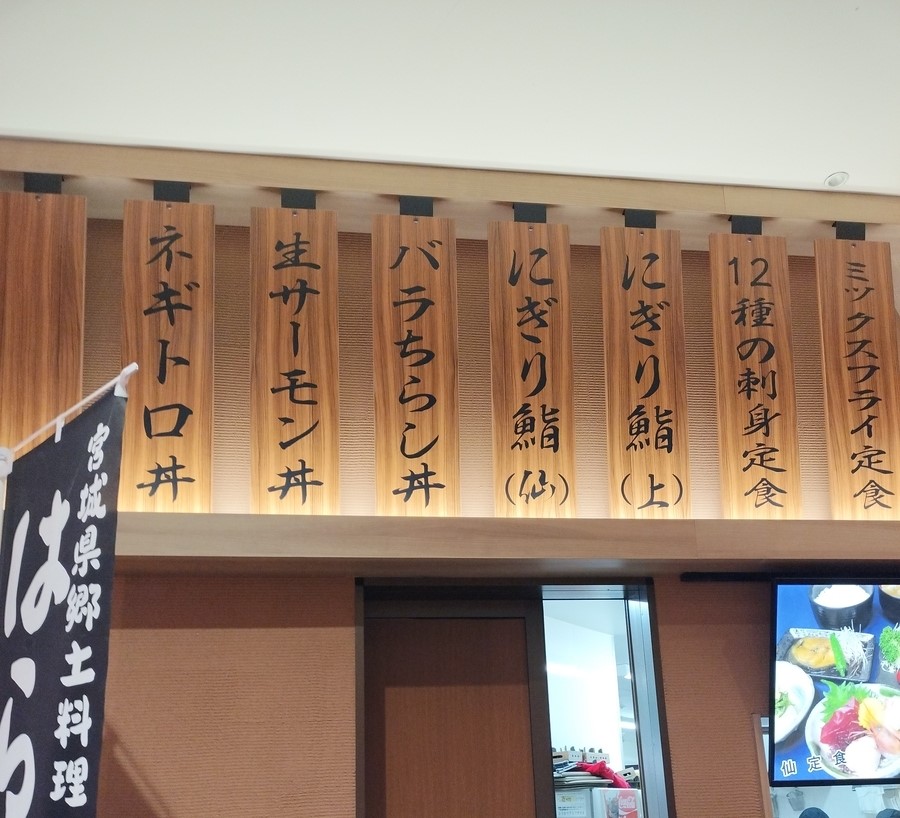 ミックスフライ定食
12種の刺身定食
にぎり鮨(上)
にぎり鮨(仙)
バラちらし丼
生サーモン丼
ネギトロ丼
宮城県郷土料理
はら
仙定食